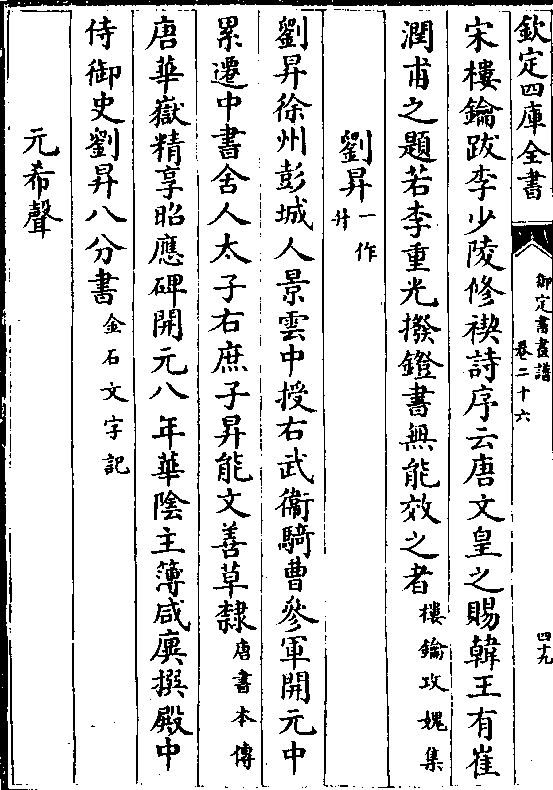 欽定四庫全書
御定書畫譜
卷二十六
四十九
宋樓鑰跋李少陵修禊詩序云唐文皇之賜韓王有崔
潤甫之題若李重光撥鐙書無能效之者樓鑰攻媿集
劉昇一作升
劉昇徐州彭城人景雲中授右武衞騎曹參軍開元中
累遷中書舍人太子右庶子昇能文善草隸唐書本傳
唐華嶽精享昭應碑開元八年華陰主簿咸廙撰殿中
侍御史劉昇八分書金石文字記
元希聲